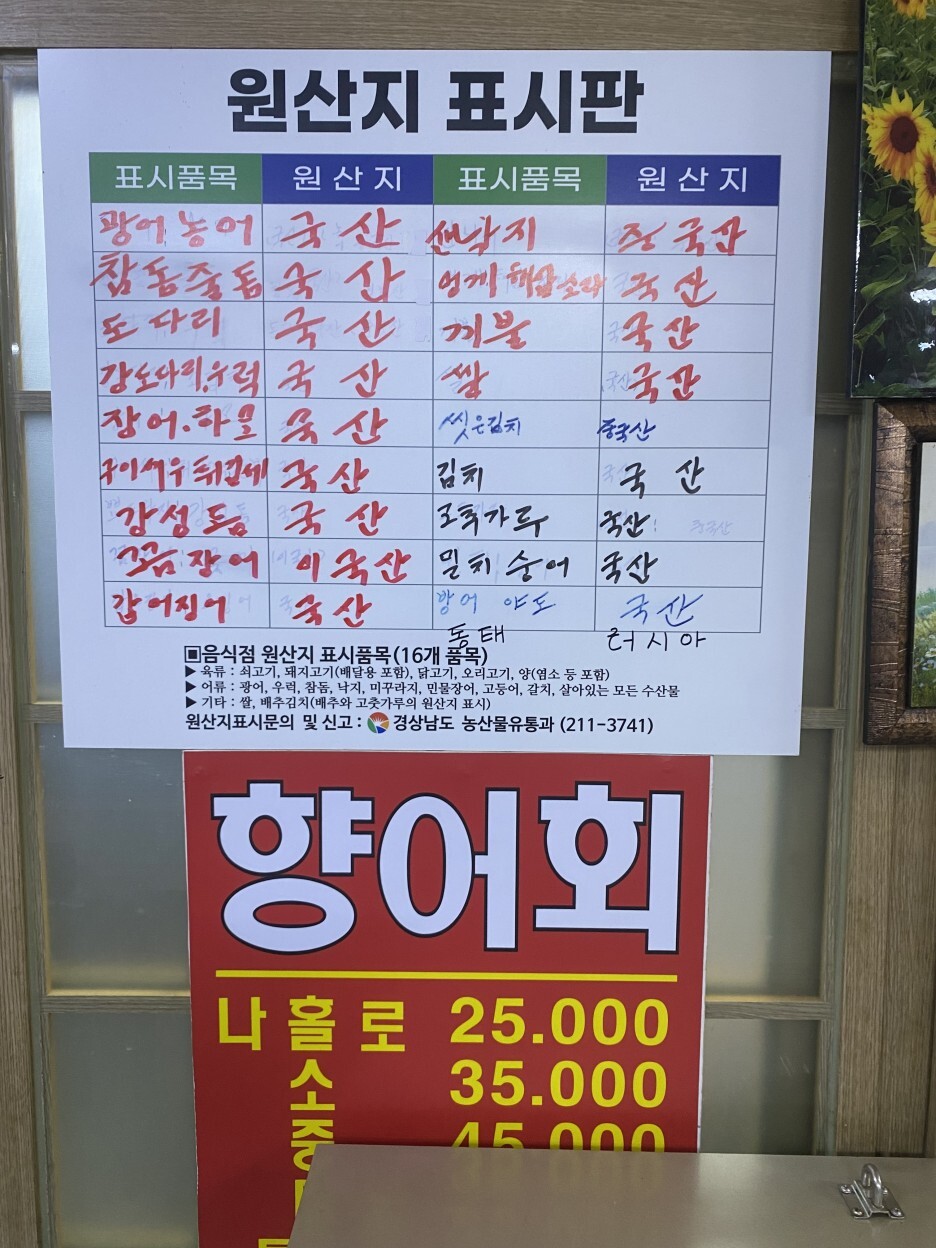 원산지 표시판
표시품목 원산지 표시품목 원산지
광어 농어 국산 산낙지 중국산
참돔 줄돔 국산 멍게 해삼 소라 국산
도다리 국산 개불 국산
강도다리, 우럭 국산 쌀 국산
장어. 하모 국산 씻은김치 중국산
국산 김치 국산
감성돔 국산 국산
꼼장어 국산 밀치 숭어 국산
국산 향어 국산
동태 러시아
▣음식점 원산지 표시품목(16개 품목)
▶ 육류 : 쇠고기, 돼지고기(배달용 포함), 닭고기, 오리고기, 양(염소 등 포함)
▶ 어류 : 광어, 우럭, 참돔, 낙지, 미꾸라지, 민물장어, 고등어, 갈치, 살아있는 모든 수산물
▶ 기타 : 쌀, 배추김치(배추와 고춧가루의 원산지 표시)
원산지표시문의 및 신고 : 경상남도 농산물유통과 (211-3741)
향어회
나 홀 로 25.000
소 35.000
중 45.000